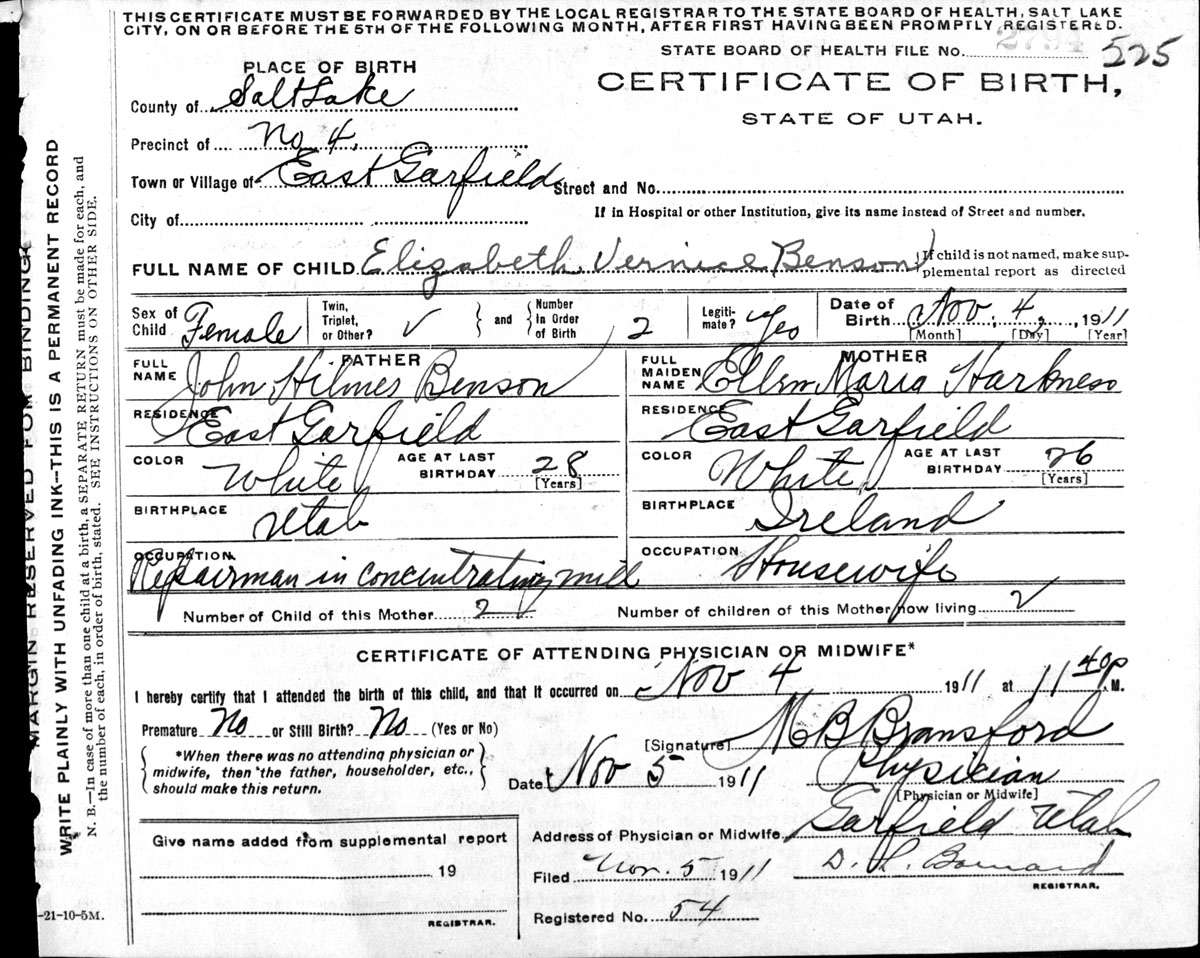 THIS CERTIFICATE MUST BE FORWARDED BY THE LOCAL REGISTRAR TO THE STATE BOARD OF HEALTH, SALT LAKE
CITY, ON OR BEFORE THE 5TH OF THE FOLLOWING MONTH, AFTER FIRST HAVING BEEN PROMPTLY REGISTERED.
STATE BOARD OF HEALTH FILE No. 2794 525
PLACE OF BIRTH
CERTIFICATE OF BIRTH,
STATE OF UTAH.
County of Salt Lake
Precinct of No 4.
Town or Village of East Garfield Street and No.
City of
If in Hospital or other Institution, give its name instead of Street and number.
FULL NAME OF CHILD Elizabeth Vernice Benson
If child is not named, make sup-
plemental report as directed
Sex of Child Female
Twin, Triplet, or Other? ✓ and Number in Order of Birth 2
Legiti-mate? Yes
Date of Birth Nov. 4, 1911
[Month] [Day] [Year]
FATHER
FULL NAME John Hilmer Benson
RESIDENCE East Garfield
COLOR White AGE AT LAST BIRTHDAY 28
[Years]
BIRTHPLACE Utah
OCCUPATION Repairman in concentrating mill
MOTHER
FULL MAIDEN NAME Ellen Maria Harkness
RESIDENCE East Garfield
COLOR White AGE AT LAST BIRTHDAY 26
[Years]
BIRTHPLACE Ireland
OCCUPATION Housewife
Number of Child of this Mother 2 Number of children of this Mother now living 2
CERTIFICATE OF ATTENDING PHYSICIAN OR MIDWIFE*
I hereby certify that I attended the birth of this child, and that it occurred on Nov 4 1911 at 11 40 P. M.
Premature No or Still Birth? No (Yes or No)
*When there was no attending physician or
midwife, then the father, householder, etc.,
should make this return.
[Signature] M B Bransford
Date Nov 5 1911 Physician
[Physician or Midwife]
Give name added from supplemental report
19
REGISTRAR.
Address of Physician or Midwife Garfield Utah
Filed Nov. 5 1911 D. L.
REGISTRAR.
Registered No. 54
MARGIN RESERVED FOR BINDING
WRITE PLAINLY WITH UNFADING INK—THIS IS A PERMANENT RECORD
N. B.—In case of more than one child at a birth, a SEPARATE RETURN must be made for each, and
the number of each, in order of birth, stated. SEE INSTRUCTIONS ON OTHER SIDE.
-21-10-5M.